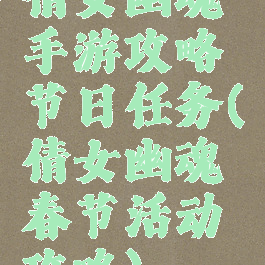 倩女幽魂
手游攻略
节日任务(
倩女幽魂
春节活动
攻略)